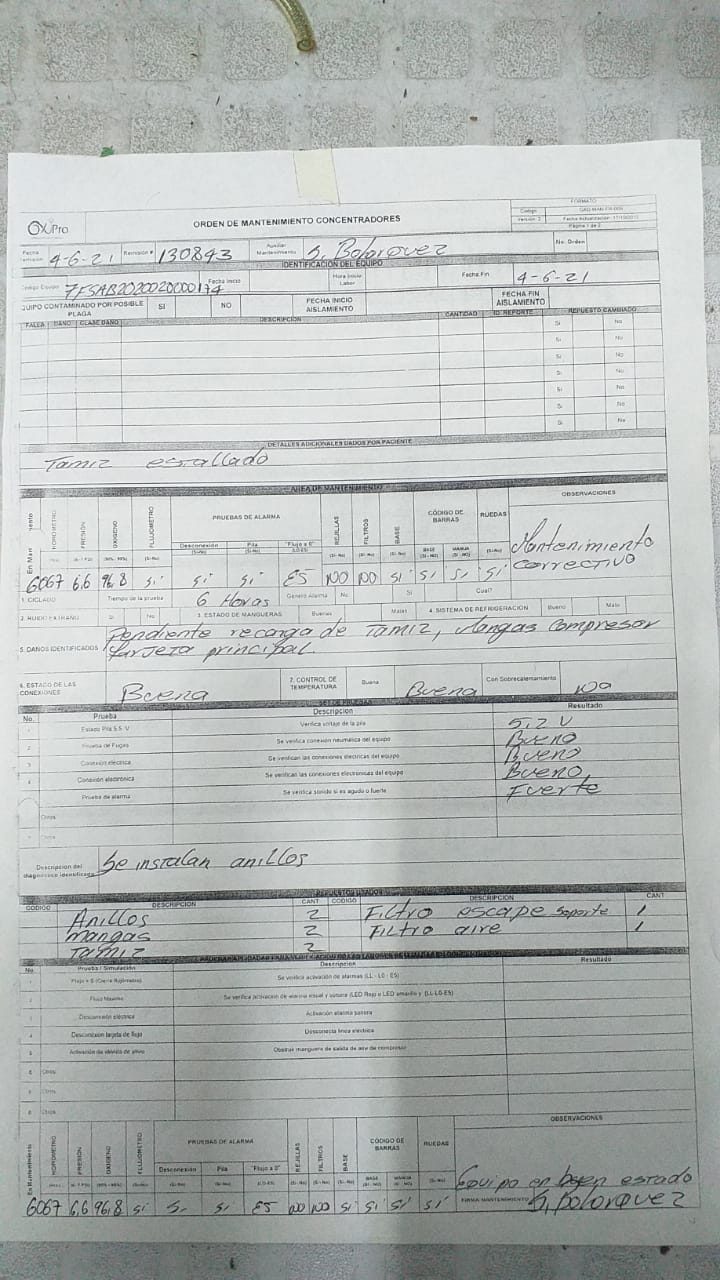 OxiPro
ORDEN DE MANTENIMIENTO CONCENTRADORES
FORMATO
Código
Versión: 2
Página 1 de 2
Fecha 4-6-21 Remisión # 130843 Auxiliar Mantenimiento S. Bolorquez No. Orden
IDENTIFICACIÓN DEL EQUIPO
Código Equipo Fecha Inicio Hora Inicio Labor Fecha Fin 4-6-21
EQUIPO CONTAMINADO POR POSIBLE PLAGA SI NO FECHA INICIO AISLAMIENTO FECHA FIN AISLAMIENTO
FALLA DAÑO CLASE DAÑO DESCRIPCIÓN CANTIDAD ID. REPORTE REPUESTO CAMBIADO
Si No
Si No
Si No
Si No
Si No
Si No
Si No
DETALLES ADICIONALES DADOS POR PACIENTE
Tamiz estallado
AREA DE MANTENIMIENTO
HOROMETRO PRESIÓN OXIGENO FLUJOMETRO PRUEBAS DE ALARMA REJILLAS FILTROS BASE CÓDIGO DE BARRAS RUEDAS OBSERVACIONES
Desconexión Pila "Flujo a 0" BASE MANIJA
(Si-No) (Si-No) (LO-ES) (Si-No) (Si-No) (Si-No) (Si-No) (Si-No) (Si-No)
6067 6,6 96,8 Si Si Si ES NO NO Si Si Si Si Mantenimiento correctivo
1. CICLADO Tiempo de la prueba 6 Horas Genero Alarma No Si Cual?
2. RUIDO EXTRAÑO Si No 3. ESTADO DE MANGUERAS Buenas Malas 4. SISTEMA DE REFRIGERACIÓN Bueno Malo
5. DAÑOS IDENTIFICADOS Pendiente recarga de Tamiz, Mangas compresor
Tarjeta principal.
6. ESTADO DE LAS CONEXIONES Buena 7. CONTROL DE TEMPERATURA Buena Buena Con Sobrecalentamiento NO
No. Prueba Descripcion Resultado
1 Estado Pila 5.5 V Verifica voltaje de la pila 5,2 V
2 Prueba de Fugas Se verifica conexión neumática del equipo Bueno
3 Conexión eléctrica Se verifican las conexiones electricas del equipo Bueno
4 Conexión electrónica Se verifican las conexiones electronicas del equipo Bueno
5 Prueba de alarma Se verifica sonido si es agudo o fuerte Fuerte
Otros
Otros
Descripcion del diagnostico identificado Se instalan anillos
REPUESTOS USADOS
CODIGO DESCRIPCION CANT CODIGO DESCRIPCION CANT
Anillos 2 Filtro escape soporte 1
Mangas 2 Filtro aire 1
Tamiz 2
No. Prueba / Simulación Descripcion Resultado
1 Se verifica activación de alarmas (LL - LO - ES)
2 Flujo Maximo Se verifica activación de alarma visual y sonora (LED Rojo o LED amarillo y (LL-LO-ES)
3 Desconexión eléctrica Activación alarma sonora
4 Desconexion tarjeta de flujo Desconecta linea electrica
5 Activación de valvula de alivio Obstruir manguera de salida de aire de compresor
6 Otros
7 Otros
8 Otros
HOROMETRO PRESIÓN OXIGENO FLUJOMETRO PRUEBAS DE ALARMA REJILLAS FILTROS BASE CÓDIGO DE BARRAS RUEDAS OBSERVACIONES
Desconexión Pila "Flujo a 0" BASE MANIJA
(Si-No) (Si-No) (LO-ES) (Si-No) (Si-No) (Si-No) (Si-No) (Si-No) (Si-No)
Equipo en buen estado
6067 6,6 96,8 Si Si Si ES NO NO Si Si Si Si FIRMA MANTENIMIENTO S. Bolorquez